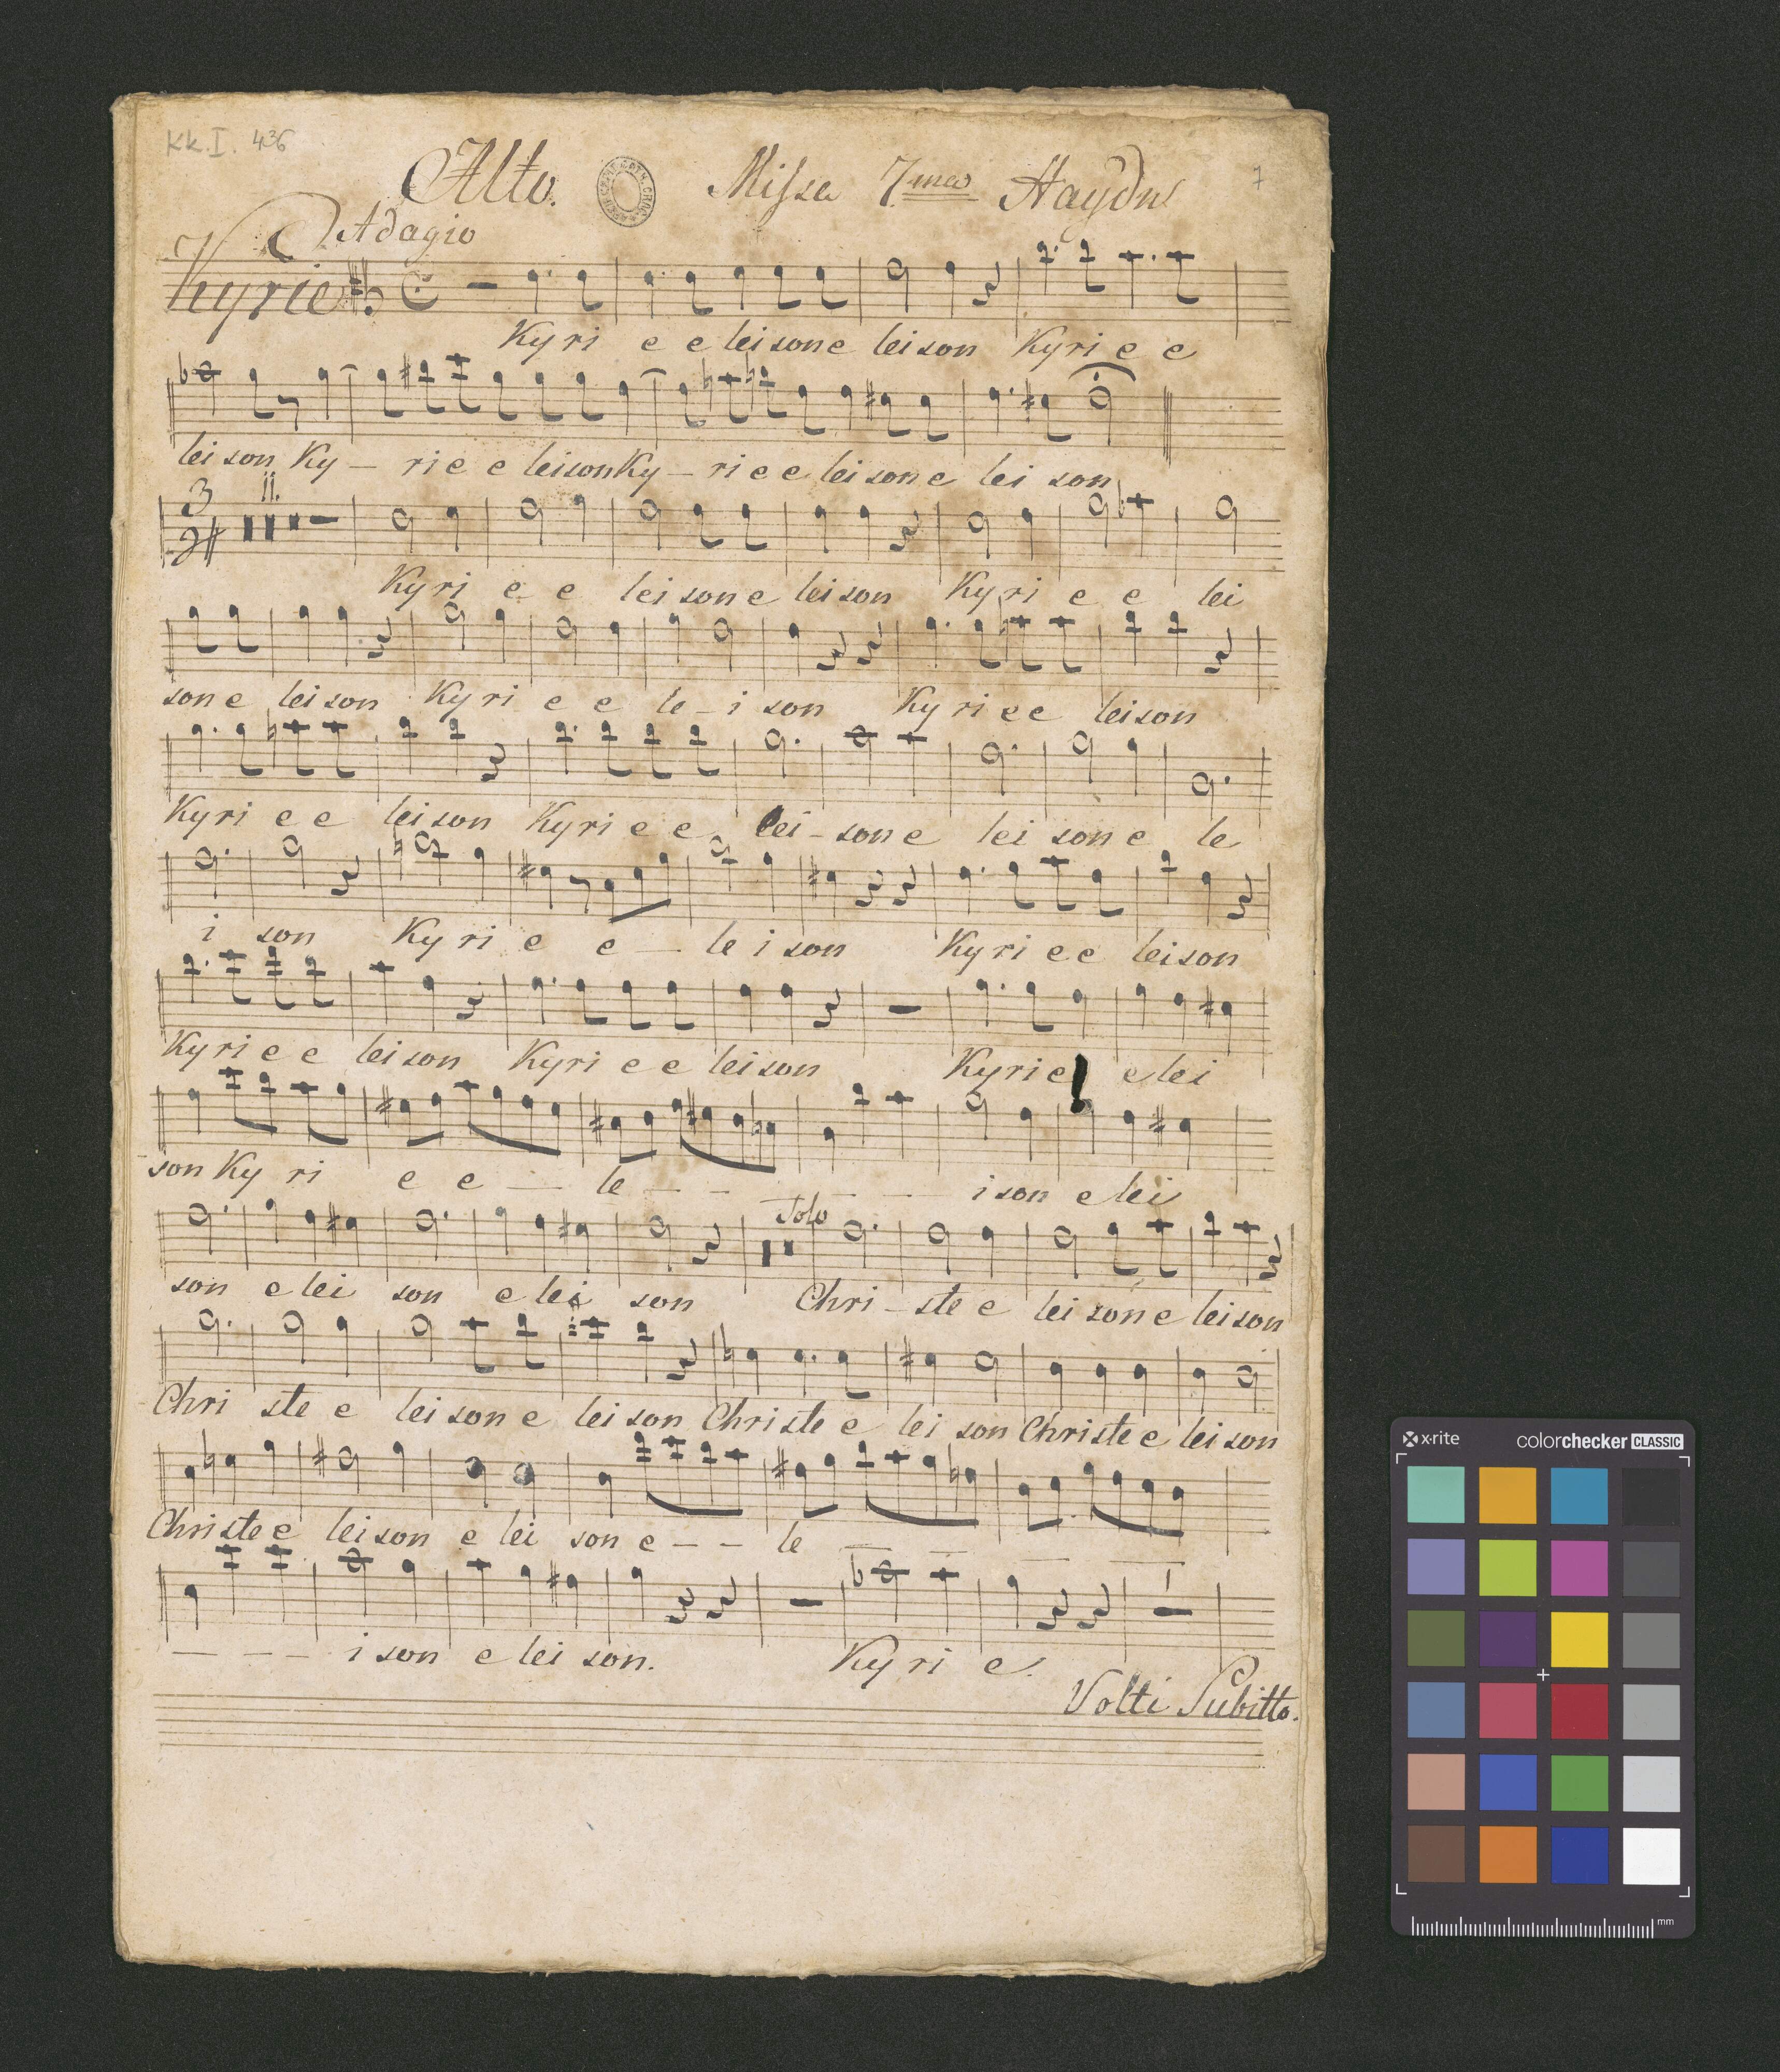 Kk. I. 436
Alto. Missa 7ma Haydn 7
Adagio
Kyrie
Kyri e e leison e leison Kyri e e
leison Ky - ri e e leison Ky - ri e e leison e lei son
3 11.
Kyri e e leison e leison Kyri e e lei
son e leison Kyri e e le - i son Kyri e e leison
Kyri e e leison Kyri e e lei - son e lei son e le
i son Kyri e e - le i son Kyri e e leison
Kyri e e leison Kyri e e leison Kyri e e lei
son Ky ri e e - le - - - - i son e lei
Solo
son e lei son e lei son Chri - ste e leison e leison
Chri ste e leison e leison Christe e lei son Christe e leison
Christe e leison e lei son e - - le
- - - i son e lei son. Kyri e.
Volti Subitto.
x-rite colorchecker CLASSIC
mm